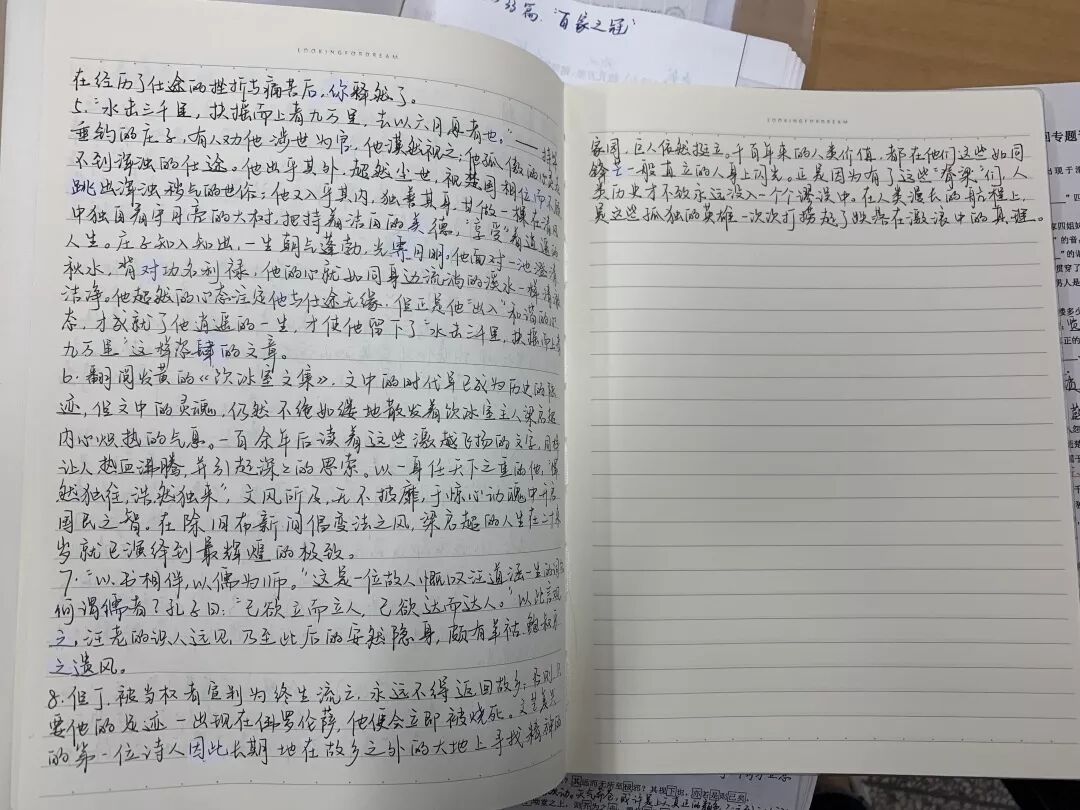 33篇，“百家之冠”
LOOKINGFORDREAM
在经历了仕途的挫折与痛苦后，你释然了。
5.“水击三千里，扶摇而上者九万里，去以六月息者也。”——持竿
垂钓的庄子，有人劝他涉世为官，他漠然视之；他孤傲的心
不到浑浊的仕途。他出乎其外，超然尘世，视楚国相位而不顾
跳出浑浊秽气的世俗；他又入乎其内，独善其身，甘做一棵在清风
中独自看守月亮的大树，把持着洁白的美德，享受着逍遥的
人生。庄子知入知出，一生朝气蓬勃，光霁月明。他面对一池澄清
秋水，背对功名利禄，他的心就如同身边流淌的溪水一样清澈
洁净。他超然的心态注定他与仕途无缘；但正是他“出入”和谐的心
态，才成就了他逍遥的一生，才使他留下了“水击三千里，扶摇而上者
九万里”这样恣肆的文章。
6.翻阅发黄的《饮冰室文集》，文中的时代早已成为历史的陈
迹，但文中的灵魂，仍然不绝如缕地散发着饮冰室主人梁启超
内心炽热的气息。一百余年后读着这些激越飞扬的文字，同样
让人热血沸腾，并引起深深的思索。以一身任天下之重的他，“浩
然独往，浩然独来”，文风所及，无不披靡，于惊心动魄中开启
国民之智。在除旧布新间倡变法之风，梁启超的人生在二十来
岁就已演绎到最辉煌的极致。
7.“以书相伴，以儒为师。”这是一位故人慨叹汪道涵一生的词
何谓儒者？孔子曰：“己欲立而立人，己欲达而达人。”以此言观
之，汪老的识人远见，乃至此后的安然隐身，颇有羊祜、鲍叔牙
之遗风。
8.但丁，被当权者宣判为终生流亡，永远不得返回故乡；否则只
要他的足迹一出现在佛罗伦萨，他便会立即被烧死。文艺复兴
的第一位诗人因此长期地在故乡之外的大地上寻找精神的
LOOKINGFORDREAM
家园，巨人依然挺立。千百年来的人类价值，都在他们这些如同
锋芒一般直立的人身上闪光。正是因为有了这些“脊梁”们，人
类历史才不致永远没入一个个谬误中。在人类漫长的航程上，
是这些孤独的英雄一次次打捞起了快落在激流中的真理。
专题